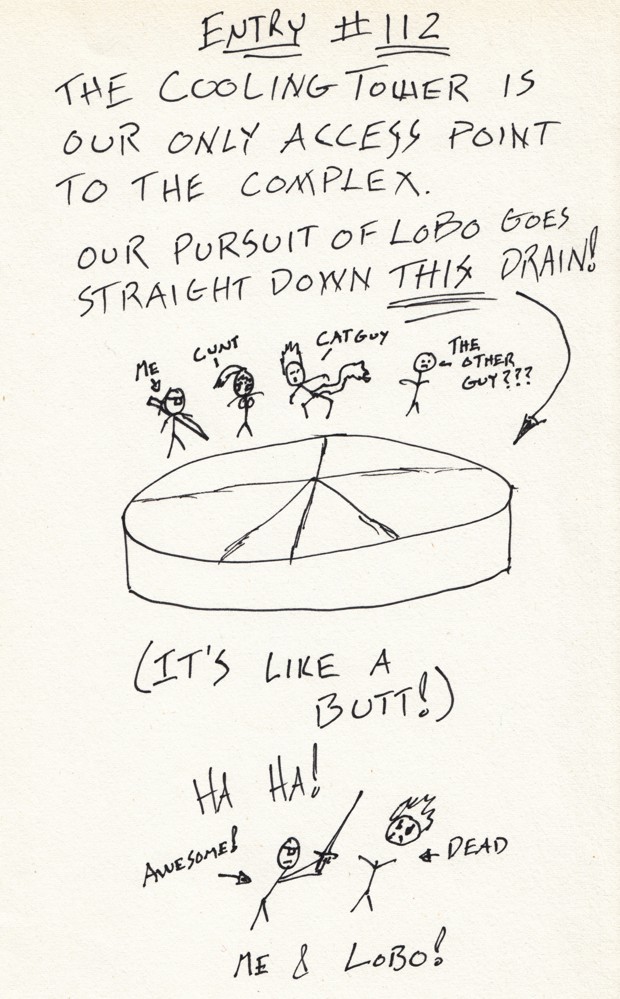 ENTRY #112
THE COOLING TOWER IS
OUR ONLY ACCESS POINT
TO THE COMPLEX.
OUR PURSUIT OF LOBO GOES
STRAIGHT DOWN THIS DRAIN!
ME
CUNT
CATGUY
THE
OTHER
GUY???
(IT'S LIKE A
BUTT!)
HA HA!
AWESOME!
DEAD
ME & LOBO!